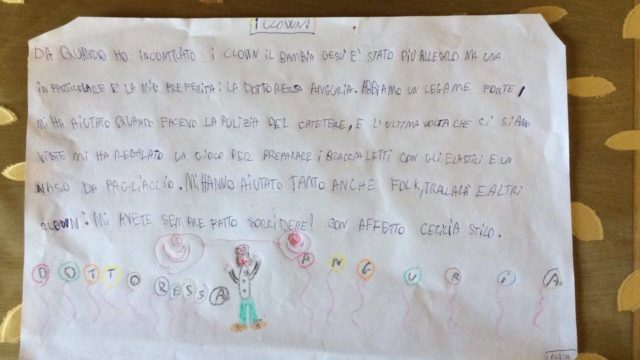 I CLOWN!
DA QUANDO HO INCONTRATO I CLOWN IL BAMBIN GESÙ E' STATO PIÙ ALLEGRO MA UNA
IN PARTICOLARE E' LA MIA PREFERITA: LA DOTTORESSA ANGURIA. ABBIAMO UN LEGAME FORTE,
MI HA AIUTATO QUANDO FACEVO LA PULIZIA DEL CATETERE, E L'ULTIMA VOLTA CHE CI SIAMO
VISTE MI HA REGALATO LA GIOCO PER PREPARARE I BRACCIALETTI CON GLI ELASTICI E UN
NASO DA PAGLIACCIO. MI HANNO AIUTATO TANTO ANCHE FOLK, TRALALÀ E ALTRI
CLOWN: MI AVETE SEMPRE FATTO SORRIDERE! CON AFFETTO
DOTTORESSA ANGURIA